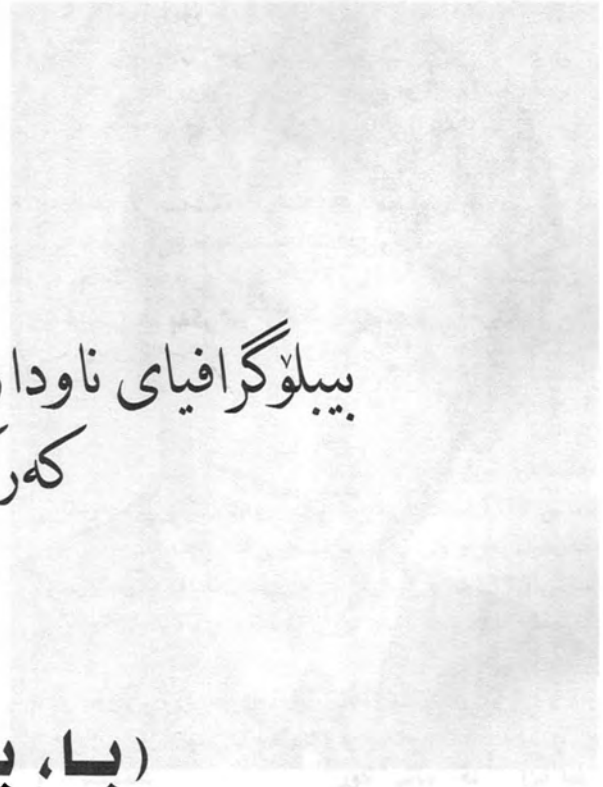 بیبلۆگرافیای ناودا
کەر
(با،